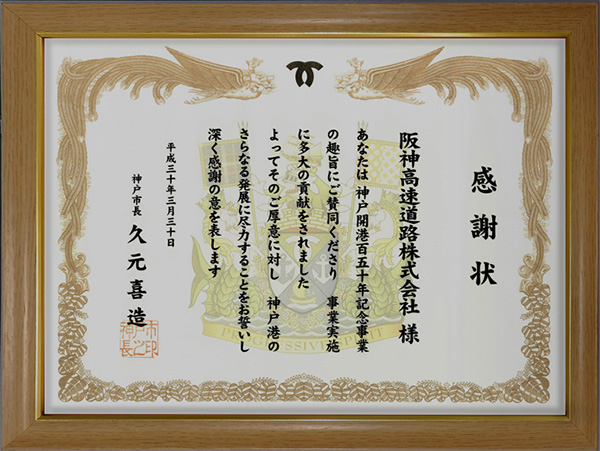 感謝状
阪神高速道路株式会社 様
あなたは 神戸開港百五十年記念事業
の趣旨にご賛同くださり 事業実施
に多大の貢献をされました
よってそのご厚意に対し 神戸港の
さらなる発展に尽力することをお誓いし
深く感謝の意を表します
平成三十年三月三十日
神戸市長 久元喜造
神戸市長之印